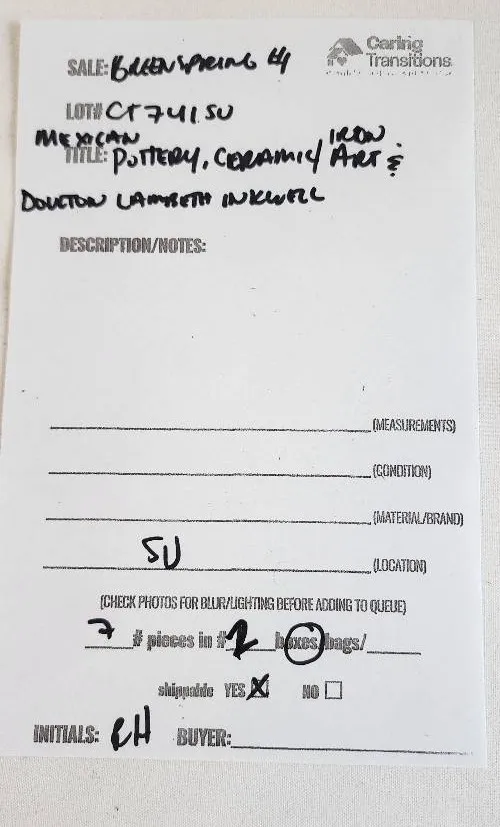 Caring
Transitions
SALE: GREENSPRING #4
LOT# CT741 SU
MEXICAN IRON
TITLE: POTTERY, CERAMIC/ ART &
DOULTON LAMBETH INKWELL
DESCRIPTION/NOTES:
(MEASUREMENTS)
(CONDITION)
(MATERIAL/BRAND)
SU (LOCATION)
(CHECK PHOTOS FOR BLUR/LIGHTING BEFORE ADDING TO QUEUE)
7 # pieces in # 2 boxes/bags/
shippable YES X NO
INITIALS: RH BUYER: